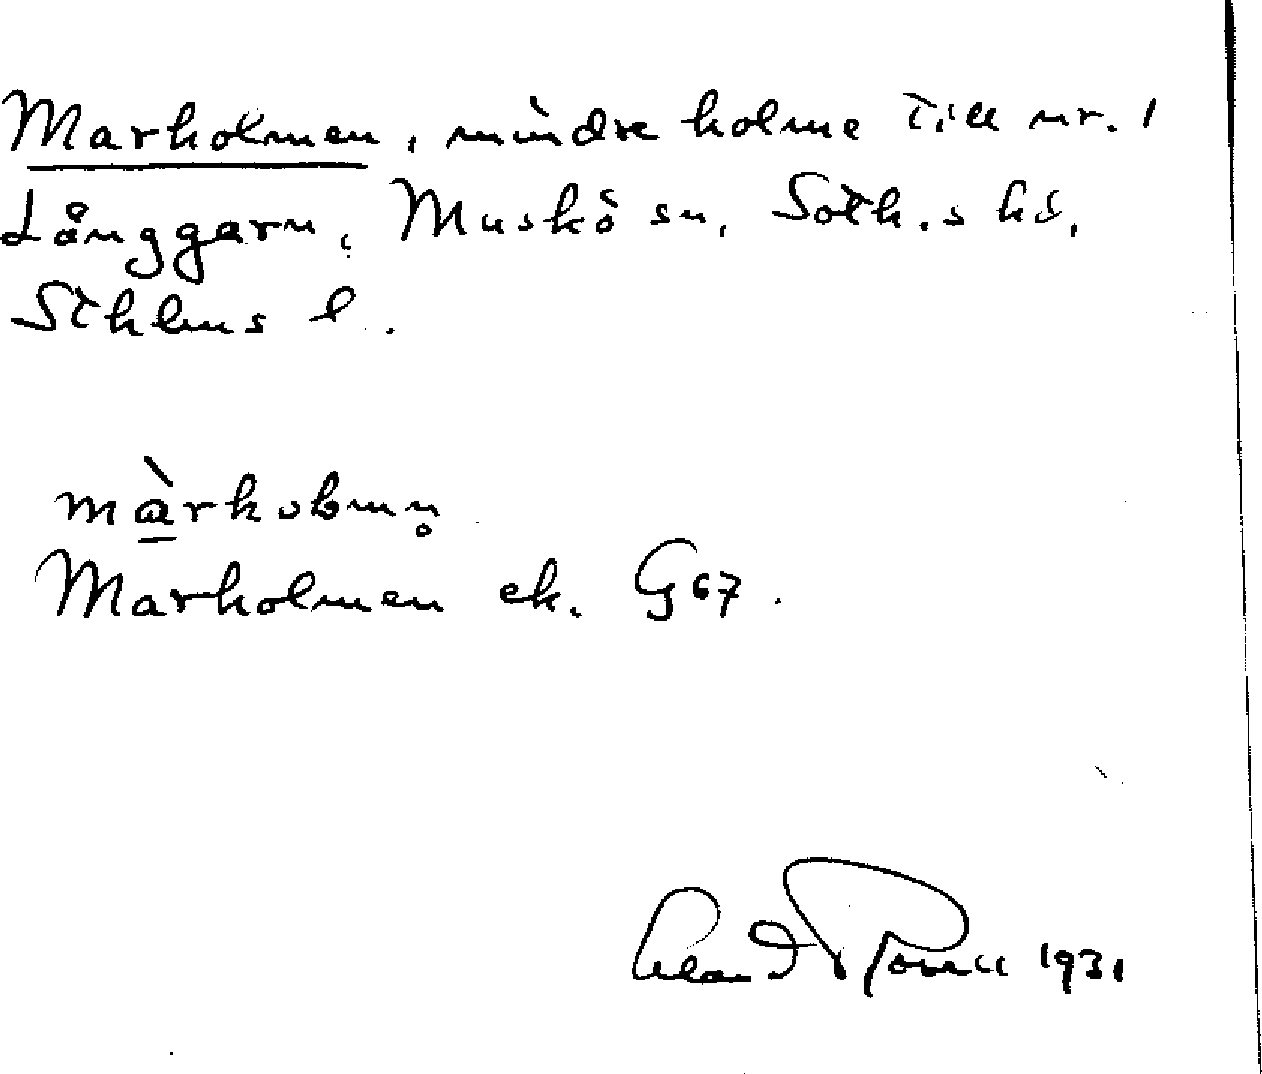 Marholmen, mindre holme till nr. 1
Långgarn, Muskö sn, Soth.s hd,
Sthlms l.
màrholmn̥
Marholmen ek. G 67.
1931